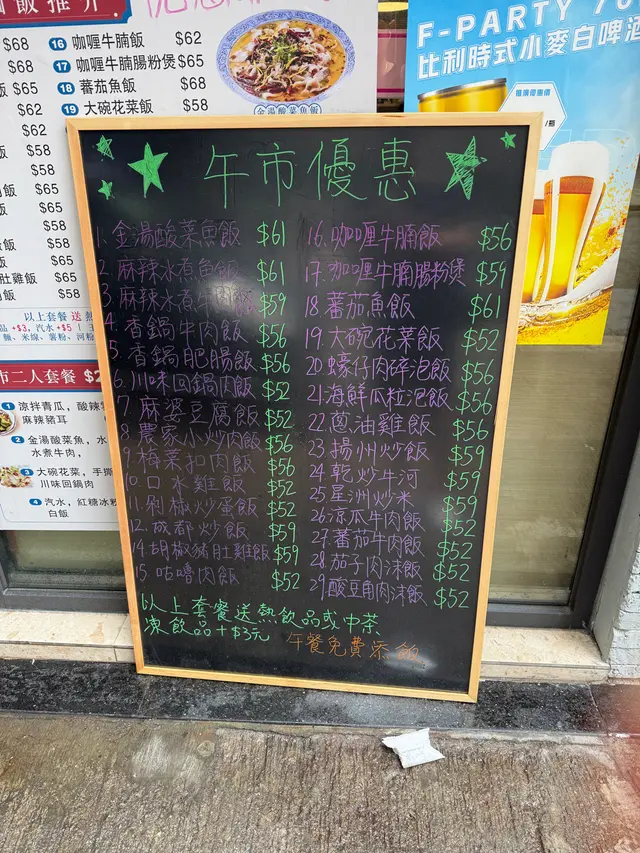 飯推介
$68
$68
$65
$62
$62
$58
$58
$65
$65
$65
$58
$65
$58
$58
16 咖喱牛腩飯 $62
17 咖喱牛腩腸粉煲 $65
18 蕃茄魚飯 $68
19 大碗花菜飯 $58
金湯酸菜魚飯
F-PARTY
比利時式小麥白啤酒
推廣優惠價
/瓶
以上套餐送熱
品+$3, 汽水+$5
麵、米線、薯粉、河粉
市二人套餐
1 涼拌青瓜，酸辣
麻辣豬耳
2 金湯酸菜魚，水
水煮牛肉，
3 大碗花菜，手撕
川味回鍋肉
4 汽水，紅糖冰粉
白飯
午市優惠
1. 金湯酸菜魚飯 $61
2. 麻辣水煮魚飯 $61
3. 麻辣水煮牛肉飯 $59
4. 香鍋牛肉飯 $56
5. 香鍋肥腸飯 $56
6. 川味回鍋肉飯 $52
7. 麻婆豆腐飯 $52
8. 農家小炒肉飯 $56
9. 梅菜扣肉飯 $56
10. 口水雞飯 $52
11. 剁椒炒蛋飯 $52
12. 成都炒飯 $59
14. 胡椒豬肚雞飯 $59
15. 咕嚕肉飯 $52
16. 咖喱牛腩飯 $56
17. 咖喱牛腩腸粉煲 $59
18. 蕃茄魚飯 $61
19. 大碗花菜飯 $52
20. 蠔仔肉碎泡飯 $56
21. 海鮮瓜粒泡飯 $56
22. 蔥油雞飯 $56
23. 揚州炒飯 $59
24. 乾炒牛河 $59
25. 星洲炒米 $59
26. 涼瓜牛肉飯 $52
27. 蕃茄牛肉飯 $52
28. 茄子肉沫飯 $52
29 酸豆角肉沫飯 $52
以上套餐送熱飲品或中茶
凍飲品+$3元 午餐免費添飯